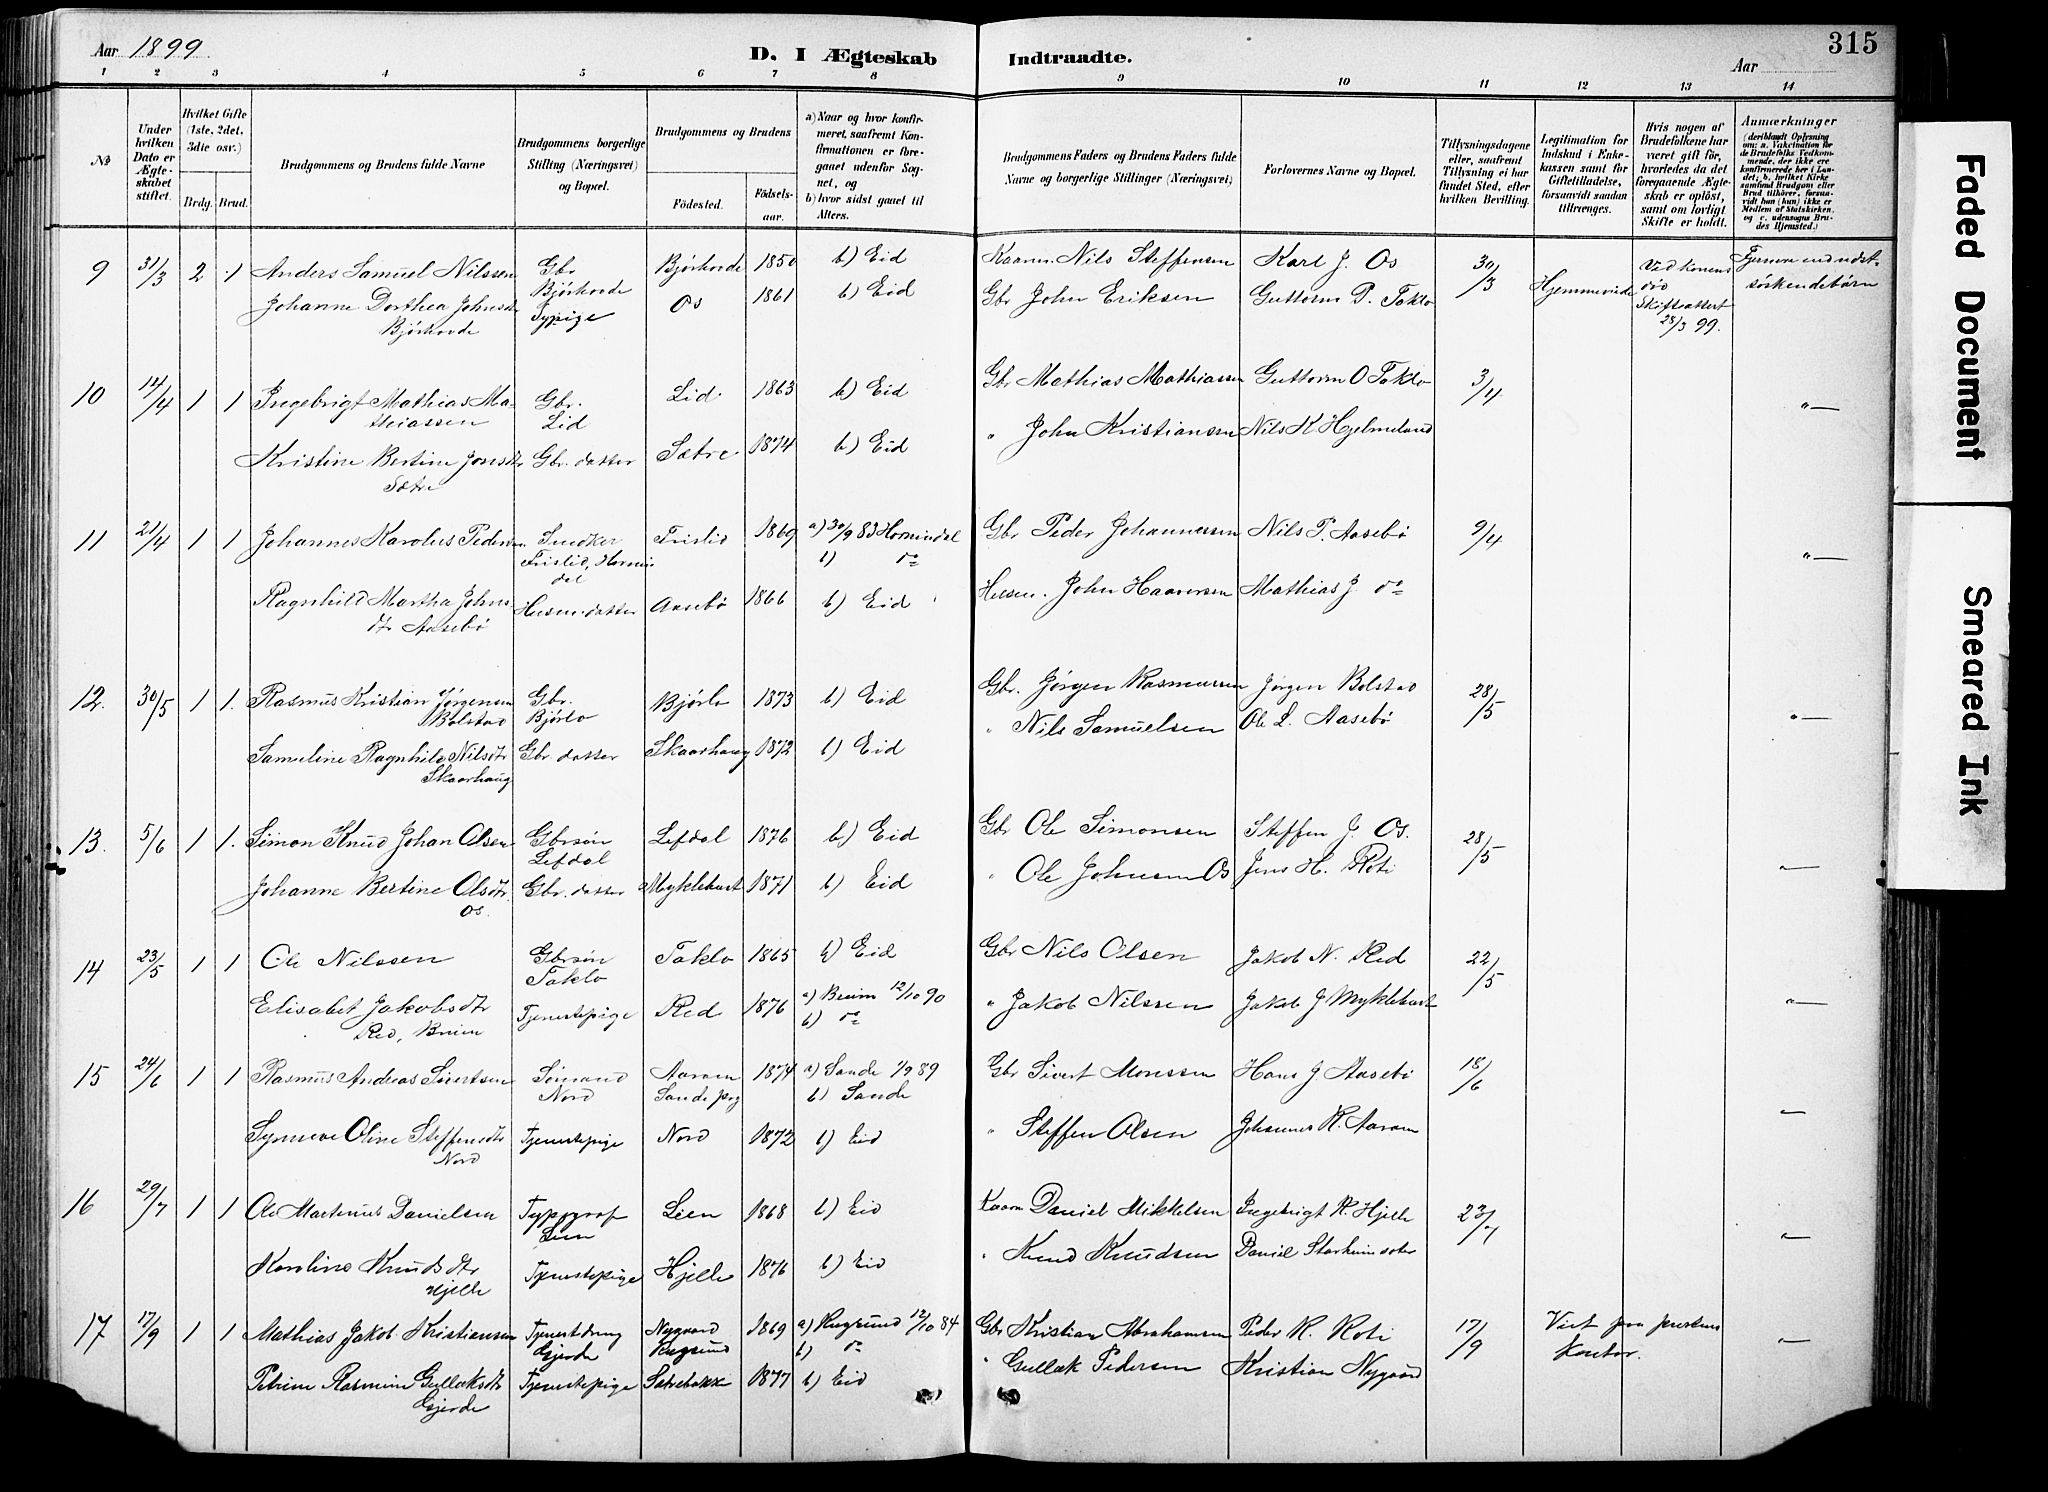 Aar 1899.
D. I Ægteskab Indtraadte.
Aar
315
1 2 3 4 5 6 7 8 9 10 11 12 13 14
No
Under hvilken Dato er Ægteskabet stiftet.
Hvilket Gifte (1ste, 2det, 3die osv.)
Brdg. Brud.
Brudgommens og Brudens fulde Navne
Brudgommens borgerlige Stilling (Næringsvei) og Bopæl.
Brudgommens og Brudens
Födested.
Födselsaar.
a) Naar og hvor konfirmeret, saafremt Konfirmationen er foregaaet udenfor Sognet, og
b) hvor sidst gaaet til Alters.
Brudgommens Faders og Brudens Faders fulde Navne og borgerlige Stillinger (Næringsvei)
Forlovernes Navne og Bopæl.
Tillysningsdagene eller, saafremt Tillysning ei har fundet Sted, efter hvilken Bevilling.
Legitimation for Indskud i Enkekassen samt for Giftetilladelse, forsaavidt saadan tiltrænges.
Hvis nogen af Brudefolkene har været gift för, hvorledes da det foregaaende Ægteskab er oplöst, samt om lovligt Skifte er holdt.
Anmærkninger (deriblandt Oplysning om: a. Vakcination for de Brudefolks Vedkommende, der ikke ere konfirmerede her i Landet; b. hvilket Kirkesamfund Brudgom eller Brud tilhörer, forsaavidt han (hun) ikke er Medlem af Statskirken, og c. udensogns Brudes Hjemsted.)
9 31/3 2 1 Anders Samuel Nilssen Gbr Bjørhovde Bjørhovde 1850 b) Eid Kaarm. Nils Steffensen Karl J. Os 30/3 Hjemmeviede Ved konens død Skifteattest 28/3 99. Fjernere end næstsøskendebørn
Johanne Dorthea Johnsdtr Bjørhovde Sypige Os 1861 b) Eid Gbr John Eriksen Guttorm P. Taklo
10 14/4 1 1 Ingebrigt Mathias Mathiassen Gbr. Lid Lid 1863 b) Eid Gbr Mathias Mathiassen Guttorm O Taklo 3/4 "—
Kristine Bertine Jonsdtr Sætre Gbr. datter Sætre 1874 b) Eid " John Kristiansen Nils K Hjelmeland
11 21/4 1 1 Johannes Karolus Pedersen Snedker Frislid, Hornindal Frislid 1869 a) 30/9 83 Hornindal b) do Gbr Peder Johannessen Nils P. Aasebø 9/4 "—
Ragnhild Martha Johnsdtr Aasebø Husm. datter Aasebø 1866 b) Eid Husm. John Haavorsen Mathias J. do
12. 30/5 1 1. Rasmus Kristian Jørgensen Bolstad Gbr. Bjørlo Bjørlo 1873 b) Eid Gbr. Jørgen Rasmussen Jørgen Bolstad 28/5 "—
Sameline Ragnhild Nilsdtr Skaarhaug Gbr. datter Skaarhaug 1872 b) Eid " Nils Samuelsen Ole L. Aasebø
13. 5/6 1 1. Simon Knud Johan Olsen Gbrsøn Lefdal Lefdal 1876 b) Eid Gbr Ole Simonsen Steffen J. Os. 28/5 "—
Johanne Bertine Olsdtr. Os. Gbr. datter Myklebust 1871 b) Eid " Ole Johnsen Os Jens H. Roti
14 23/5 1 1 Ole Nilssen Gbrsøn Taklo Taklo 1865 b) Eid Gbr Nils Olsen Jakob N. Red 22/5 "—
Elisabet Jakobsdtr Red, Breim Tjenestepige Red 1876 a) Breim 12/10 90 b) do " Jakob Nilssen Jakob J Myklebust
15 24/6 1 1 Rasmus Andreas Sivertsen Sømand Nord Aaram Sande prg 1874 a) Sande 1/9 89 b) Sande Gbr Sivert Monssen Hans J. Aasebø 18/6 "—
Synneve Oline Steffensdtr Nord Tjenestepige Nord 1872 b) Eid " Steffen Olsen Johannes R. Aaram
16 29/7 1 1 Ole Martinus Danielsen Typograf Lien Lien 1868 b) Eid Kaarm Daniel Mikkelsen Ingebrigt R. Hjelle 23/7 "—
Karoline Knudsdtr Hjelle Tjenestepige Hjelle 1876 b) Eid " Knud Knudsen Daniel Starheimsæter
17 17/9 1 1 Mathias Jakob Kristiansen Tjenestdreng Gjerde Nygaard Rugsund 1869 a) Rugsund 12/10 84 b) do Gbr Kristian Abrahamsen Peder R. Roti 17/9 Viet paa prestens kontor. "—
Petrine Rasmine Gullaksdtr Gjerde Tjenestepige Sætrebakke 1877 b) Eid " Gullak Pedersen Kristian Nygaard
Faded Document
Smeared Ink